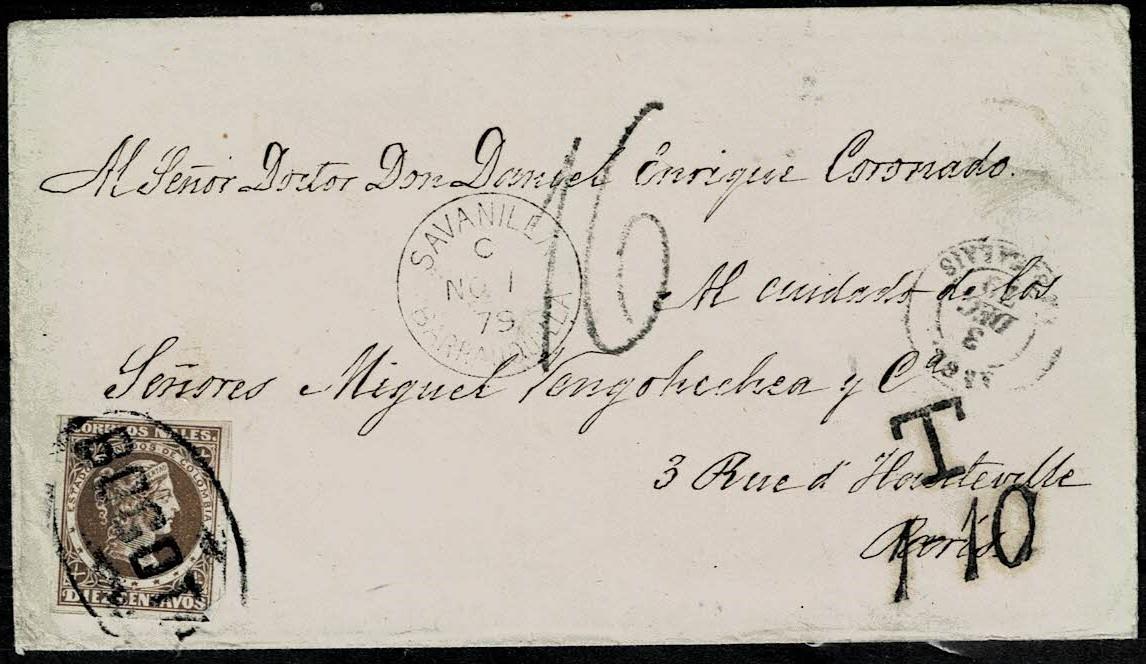 Al Señor Doctor Don Daniel Enrique Coronado.
16
SAVANILLA
C
NO 1
79
BARRANQUILLA
Al cuidado de los
CALAIS
3
DEC
79
Señores Miguel Vengohechea y Cª
T
3 Rue d'Hauteville
Paris
1 10
CORREOS NALES.
ESTADOS UNIDOS DE COLOMBIA
LIBERTAD
DIEZ CENTAVOS